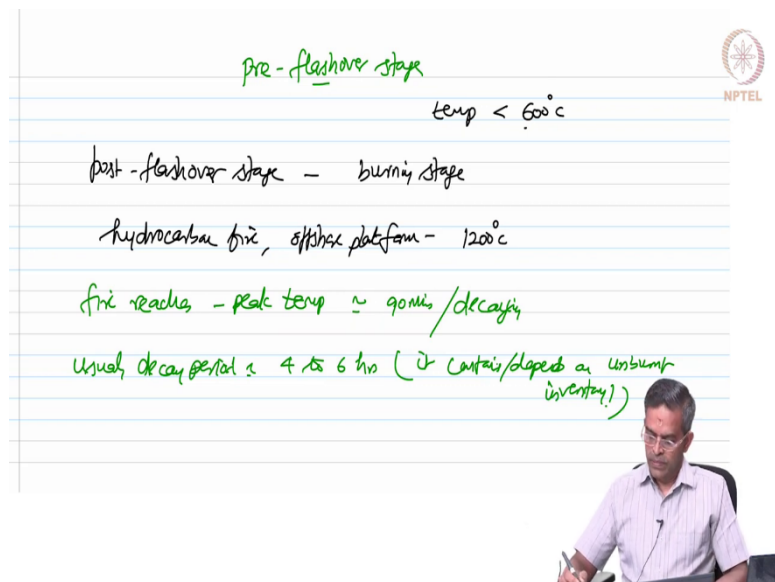 pre-flashover stage
NPTEL
temp < 600°c
post-flashover stage - burning stage
hydrocarbon fire, offshore platform - 1200°c
fire reaches - peak temp ≃ 90mis/decaying
usually decay period ≃ 4 to 6 hrs (it contais/depends on unburnt
inventory!)